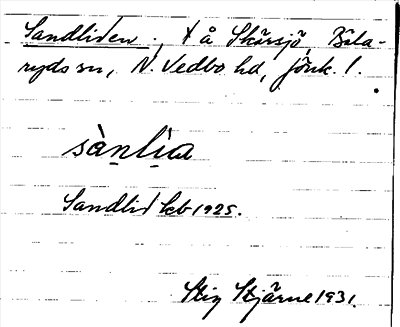 Sandliden, t å Skärsjö, Bela-
ryds sn, N. Vedbo hd, Jönk. l.
sànlìa
Sandlid kb 1925.
Stig Stjärne 1931.